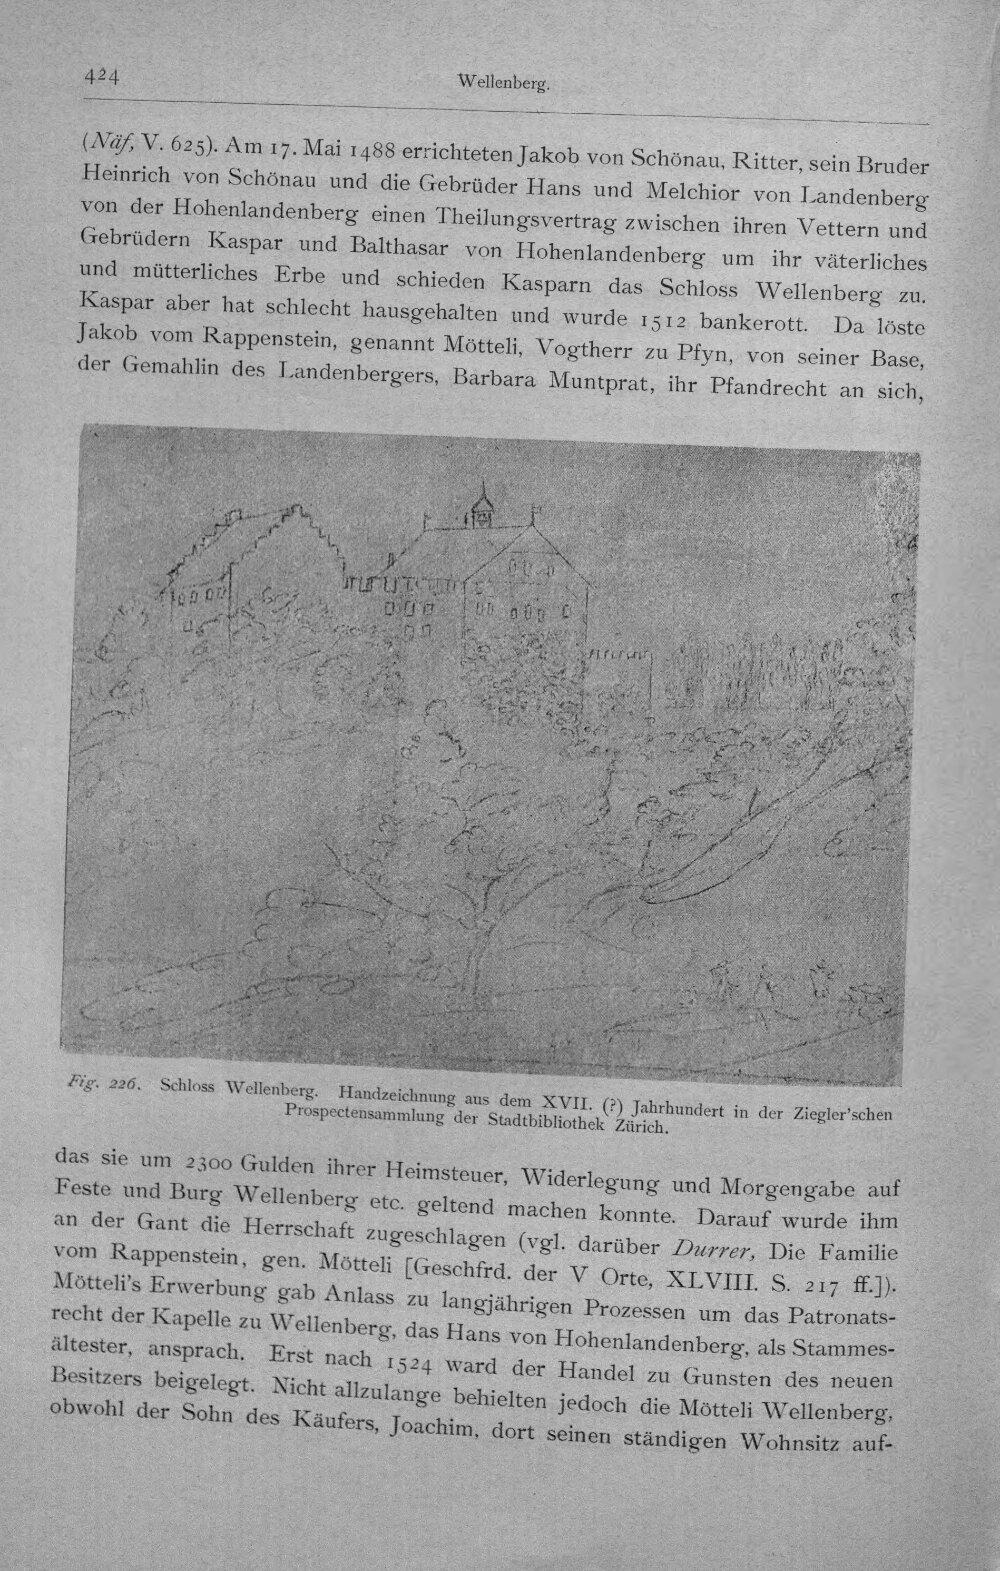 424
Wellenberg.
(Näf, V. 625). Am 17. Mai 1488 errichteten Jakob von Schönau, Ritter, sein Bruder
Heinrich von Schönau und die Gebrüder Hans und Melchior von Landenberg
von der Hohenlandenberg einen Theilungsvertrag zwischen ihren Vettern und
Gebrüdern Kaspar und Balthasar von Hohenlandenberg um ihr väterliches
und mütterliches Erbe und schieden Kasparn das Schloss Wellenberg zu.
Kaspar aber hat schlecht hausgehalten und wurde 1512 bankerott. Da löste
Jakob vom Rappenstein, genannt Mötteli, Vogtherr zu Pfyn, von seiner Base,
der Gemahlin des Landenbergers, Barbara Muntprat, ihr Pfandrecht an sich,
Fig. 226. Schloss Wellenberg. Handzeichnung aus dem XVII. (?) Jahrhundert in der Ziegler'schen
Prospectensammlung der Stadtbibliothek Zürich.
das sie um 2300 Gulden ihrer Heimsteuer, Widerlegung und Morgengabe auf
Feste und Burg Wellenberg etc. geltend machen konnte. Darauf wurde ihm
an der Gant die Herrschaft zugeschlagen (vgl. darüber Durrer, Die Familie
vom Rappenstein, gen. Mötteli [Geschfrd. der V Orte, XLVIII. S. 217 ff.]).
Mötteli's Erwerbung gab Anlass zu langjährigen Prozessen um das Patronats-
recht der Kapelle zu Wellenberg, das Hans von Hohenlandenberg, als Stammes-
ältester, ansprach. Erst nach 1524 ward der Handel zu Gunsten des neuen
Besitzers beigelegt. Nicht allzulange behielten jedoch die Mötteli Wellenberg,
obwohl der Sohn des Käufers, Joachim, dort seinen ständigen Wohnsitz auf-